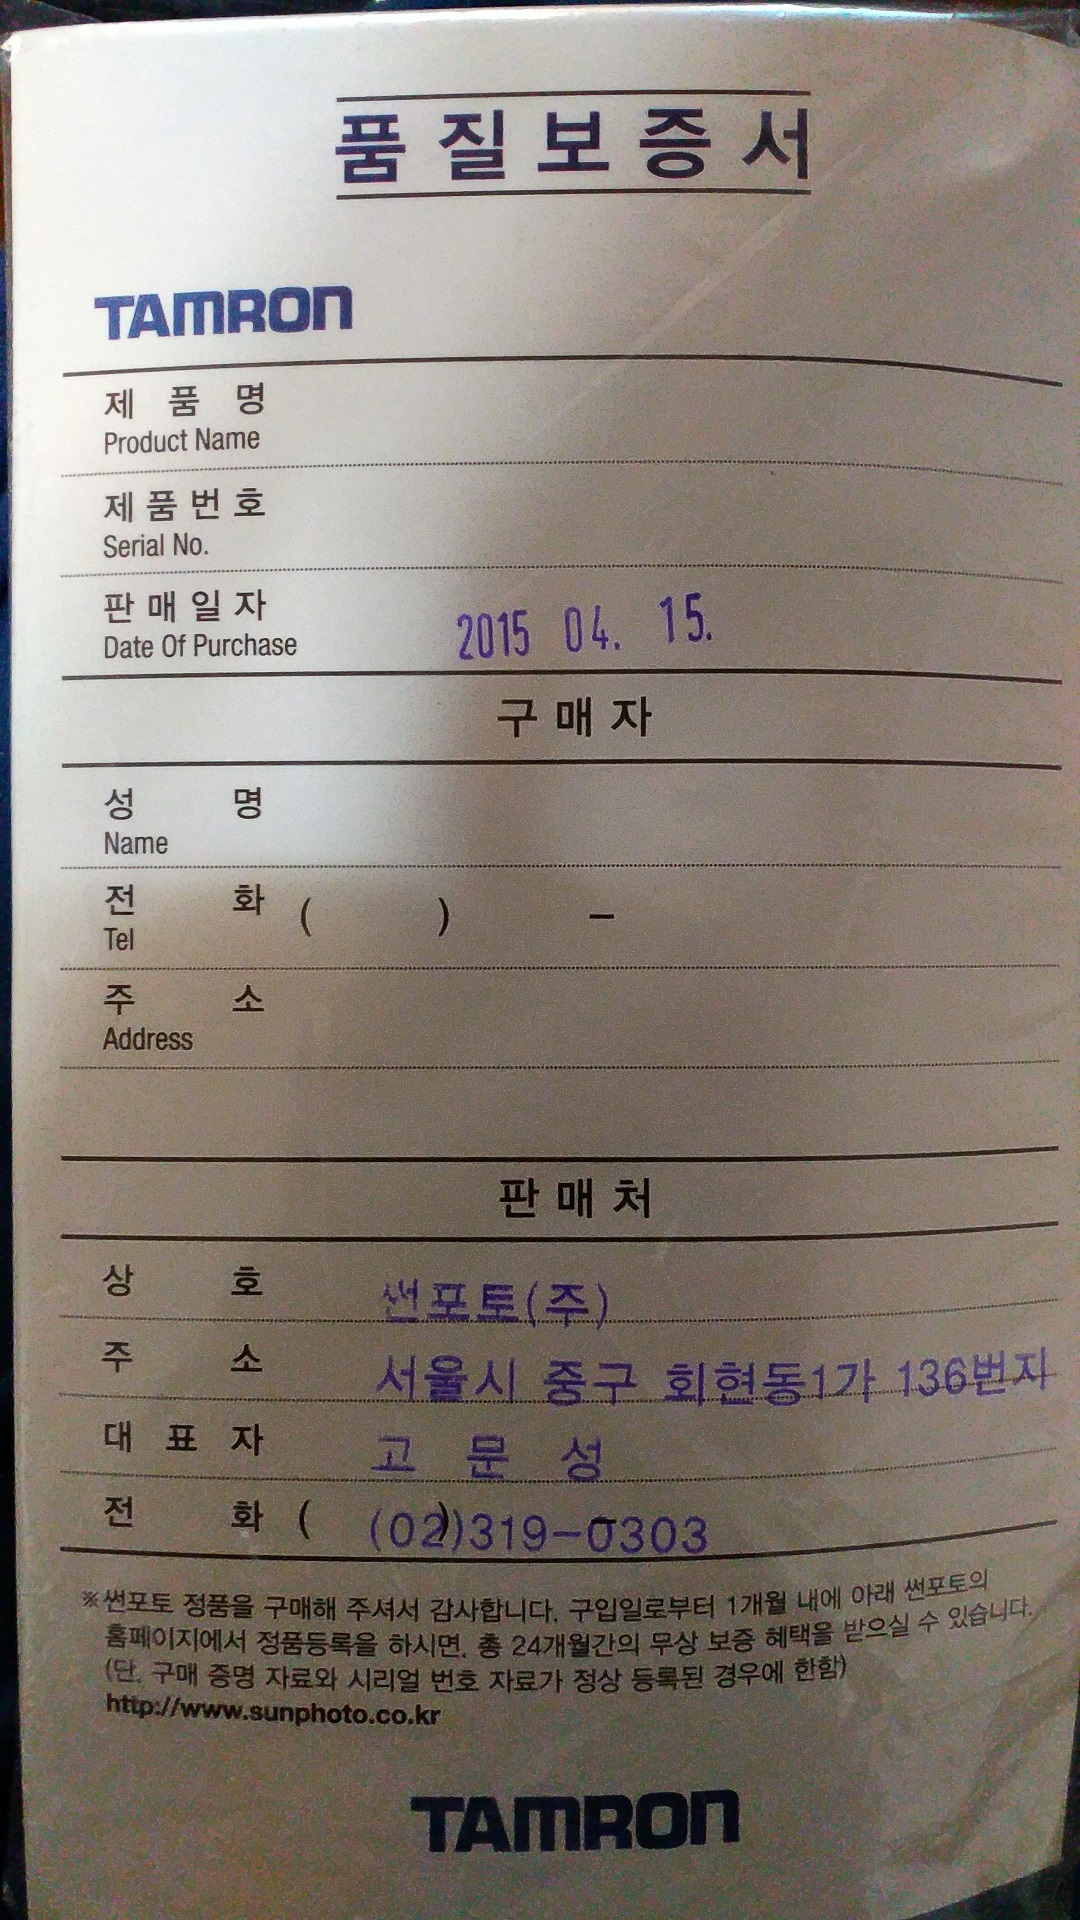 품질보증서
TAMRON
제 품 명
Product Name
제품번호
Serial No.
판매일자 2015 04. 15.
Date Of Purchase
구매자
성 명
Name
전 화 ( ) –
Tel
주 소
Address
판매처
상 호 썬포토(주)
주 소 서울시 중구 회현동1가 136번지
대 표 자 고 문 성
전 화 ( ) – (02)319-0303
※썬포토 정품을 구매해 주셔서 감사합니다. 구입일로부터 1개월 내에 아래 썬포토의
홈페이지에서 정품등록을 하시면, 총 24개월간의 무상 보증 혜택을 받으실 수 있습니다.
(단, 구매 증명 자료와 시리얼 번호 자료가 정상 등록된 경우에 한함)
http://www.sunphoto.co.kr
TAMRON